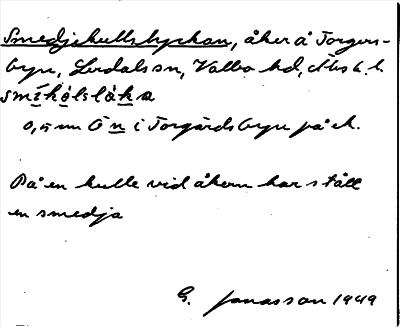 Smedjekullslyckan, åker å Torgers-
byn, Lerdals sn, Valbo hd, Älvsb. l.
smíkòlslàka
0,5 mm Ö n i Torgärdsbyn på ek.
På en kulle vid åkern har stått
en smedja
G. Jonasson 1949